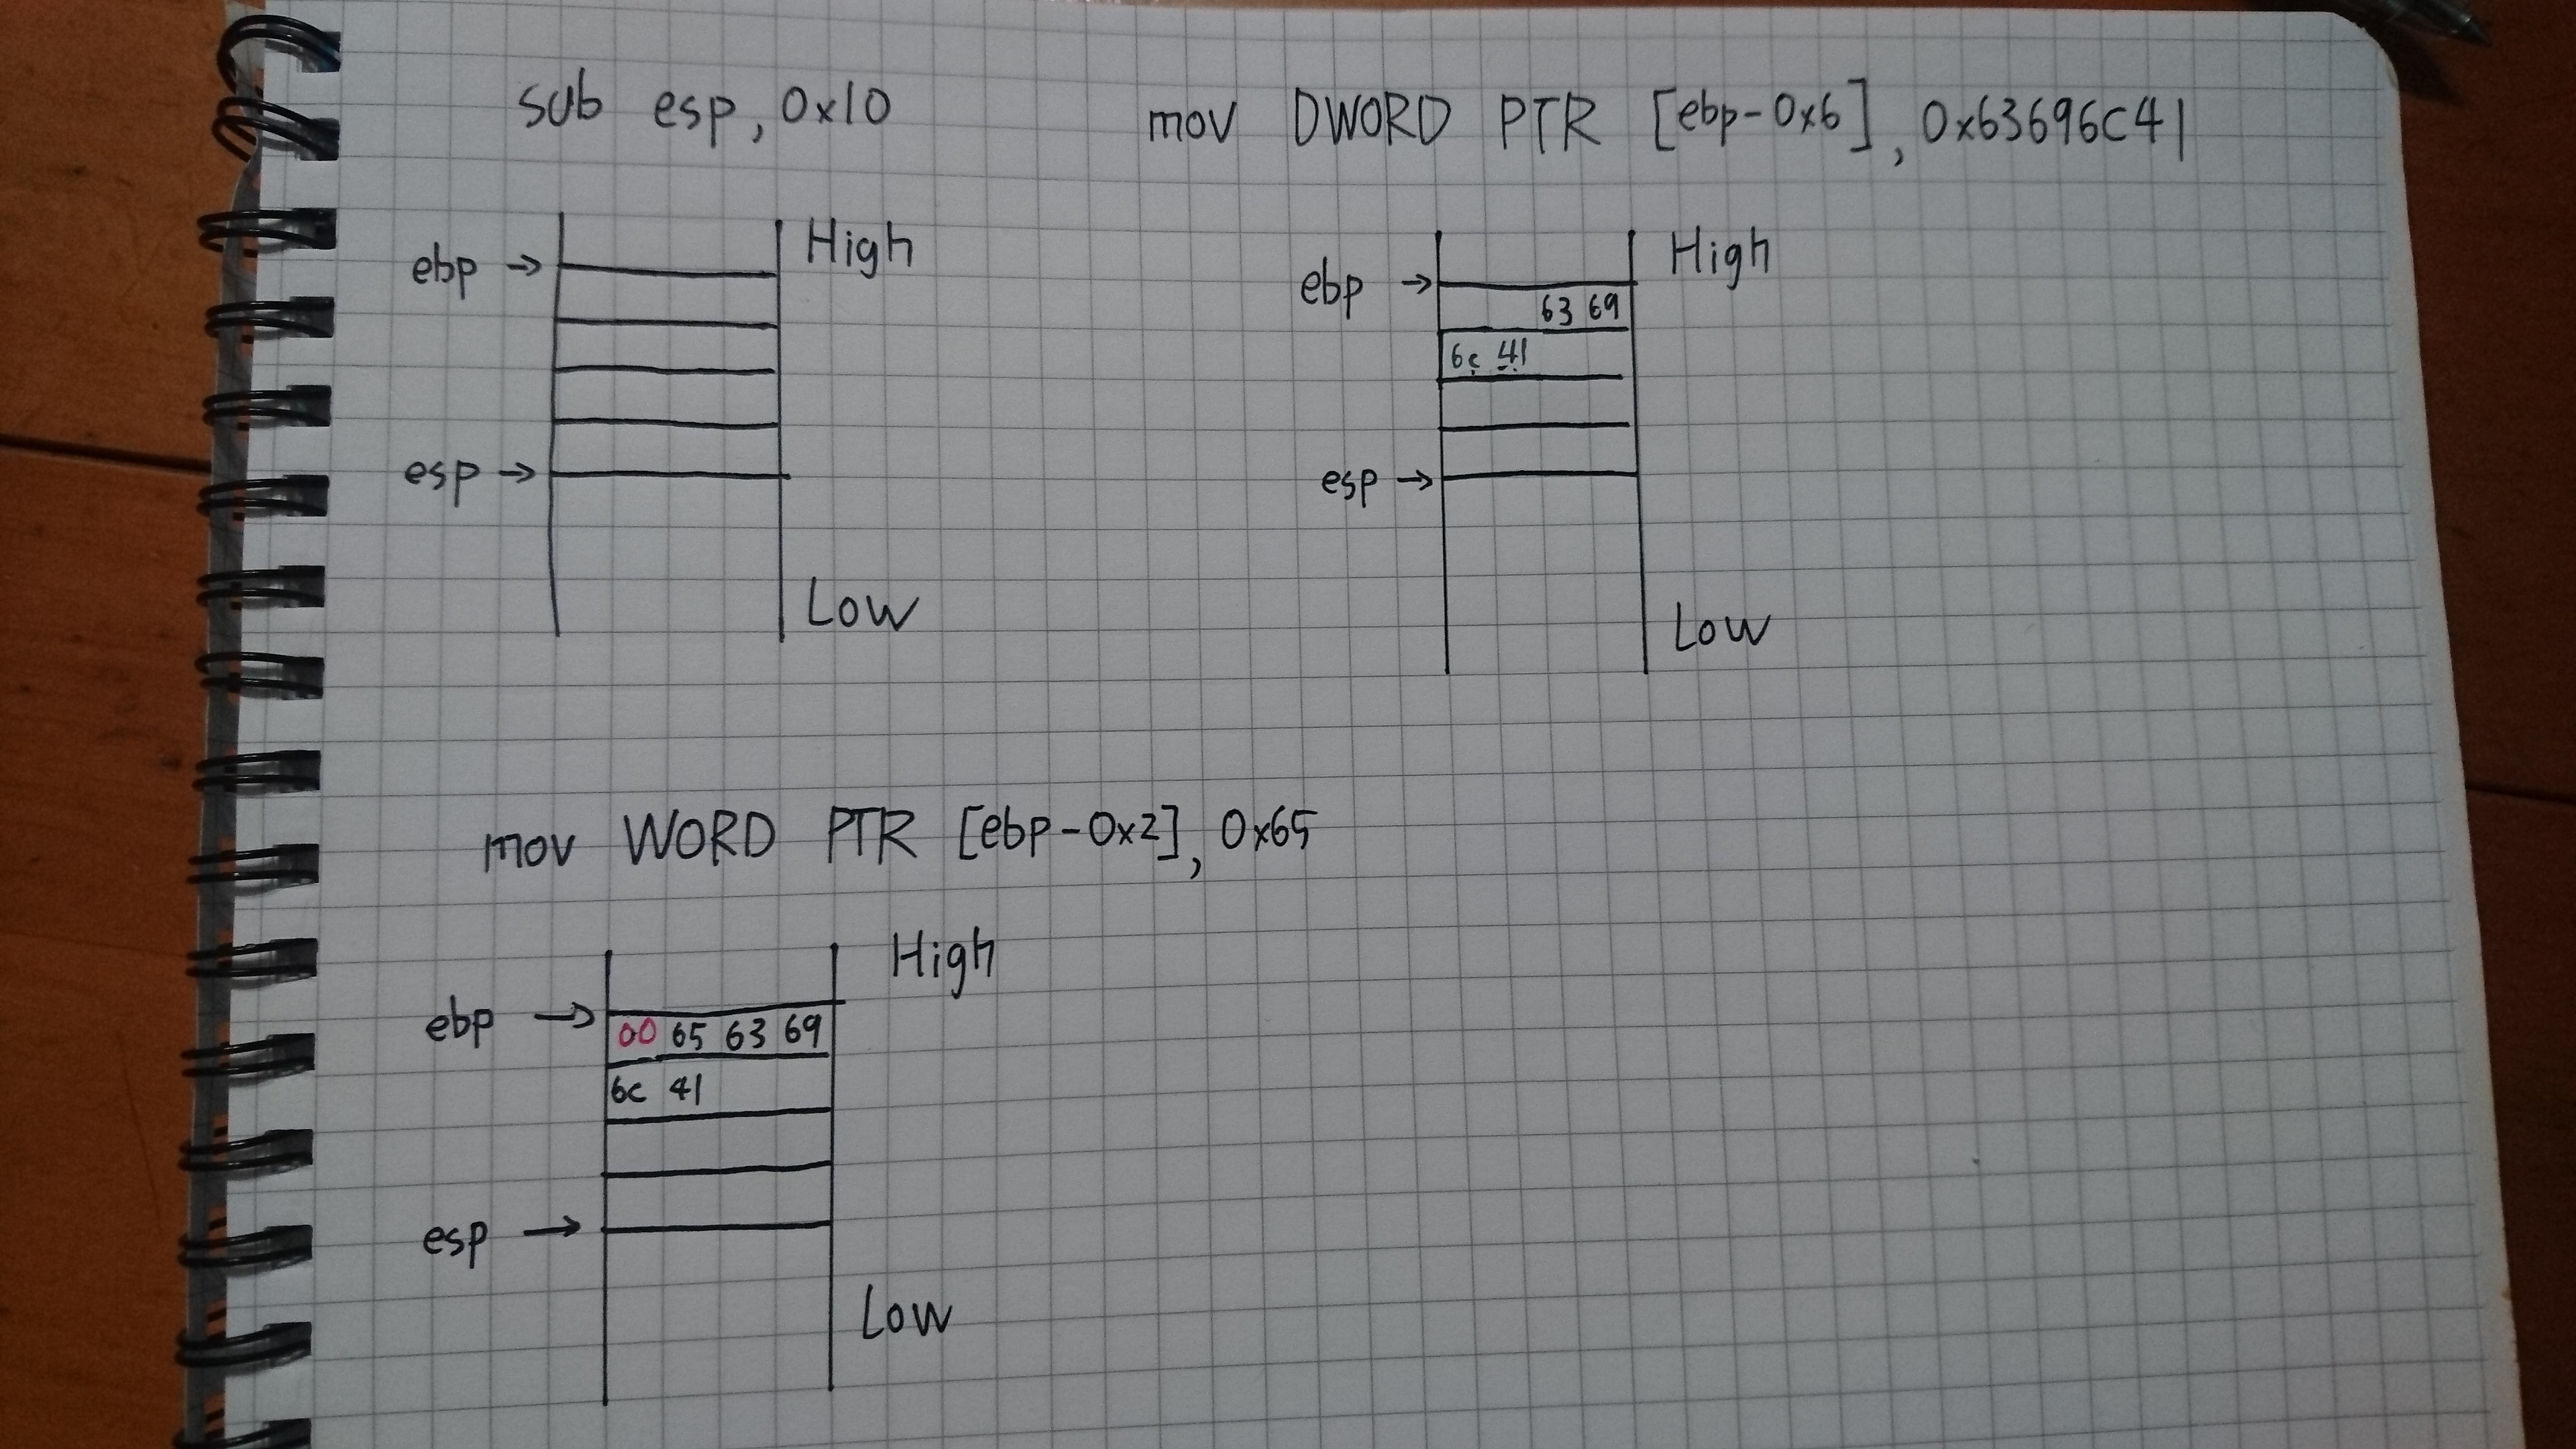 sub esp, 0x10
ebp → High
esp →
Low
mov DWORD PTR [ebp-0x6], 0x63696C41
ebp → High
63 69
6c 41
esp →
Low
mov WORD PTR [ebp-0x2], 0x65
High
ebp → 00 65 63 69
6c 41
esp →
Low